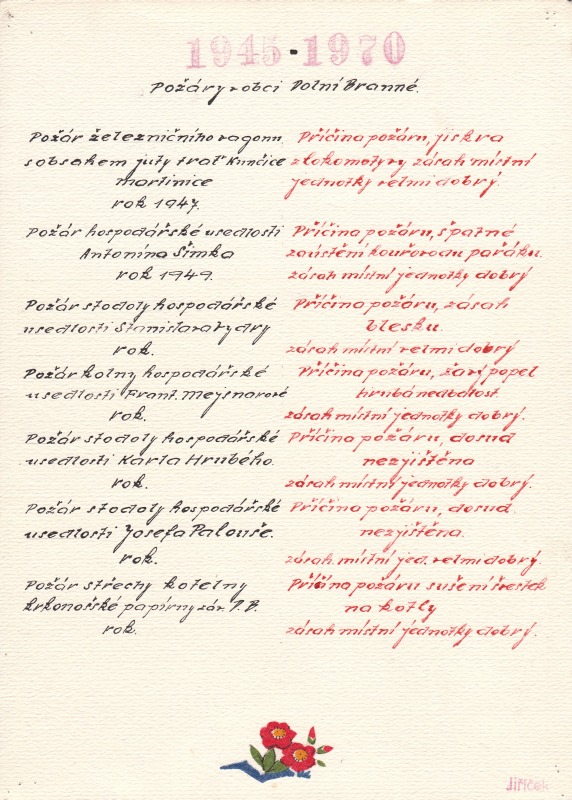 1945-1970
Požáry v obci Dolní Branné.
Požár železničního vagonu
s obsahem juty trať Kunčice
martinice
rok 1947.
Příčina požáru, jiskra
z lokomotyvy zásah místní
jednotky velmi dobrý.
Požár hospodářské usedlosti
Antonína Šimka
rok 1949.
Příčina požáru, špatné
zaústění kouřovodu pařáku.
zásah místní jednotky dobrý
Požár stodoly hospodářské
usedlosti Stanislava Vydry
rok.
Příčina požáru, zásah
blesku.
zásah místní velmi dobrý
Požár kolny hospodářské
usedlosti Frant. Mejsnarové
rok.
Příčina požáru, žavý popel
hrubá nedbalost
zásah místní jednotky dobrý.
Požár stodoly hospodářské
usedlosti Karla Hrubého.
rok.
Příčina požáru, dosud
nezjištěna
zásah místní jednotky dobrý.
Požár stodoly hospodářské
usedlosti Josefa Palouše.
rok.
Příčina požáru, dosud
nezjištěna.
zásah místní jed. velmi dobrý.
Požár střechy kotelny
krkonošské papírny záv. D.B.
rok.
Příčina požáru sušení švestek
na kotly
zásah místní jednotky dobrý.
Jiříček